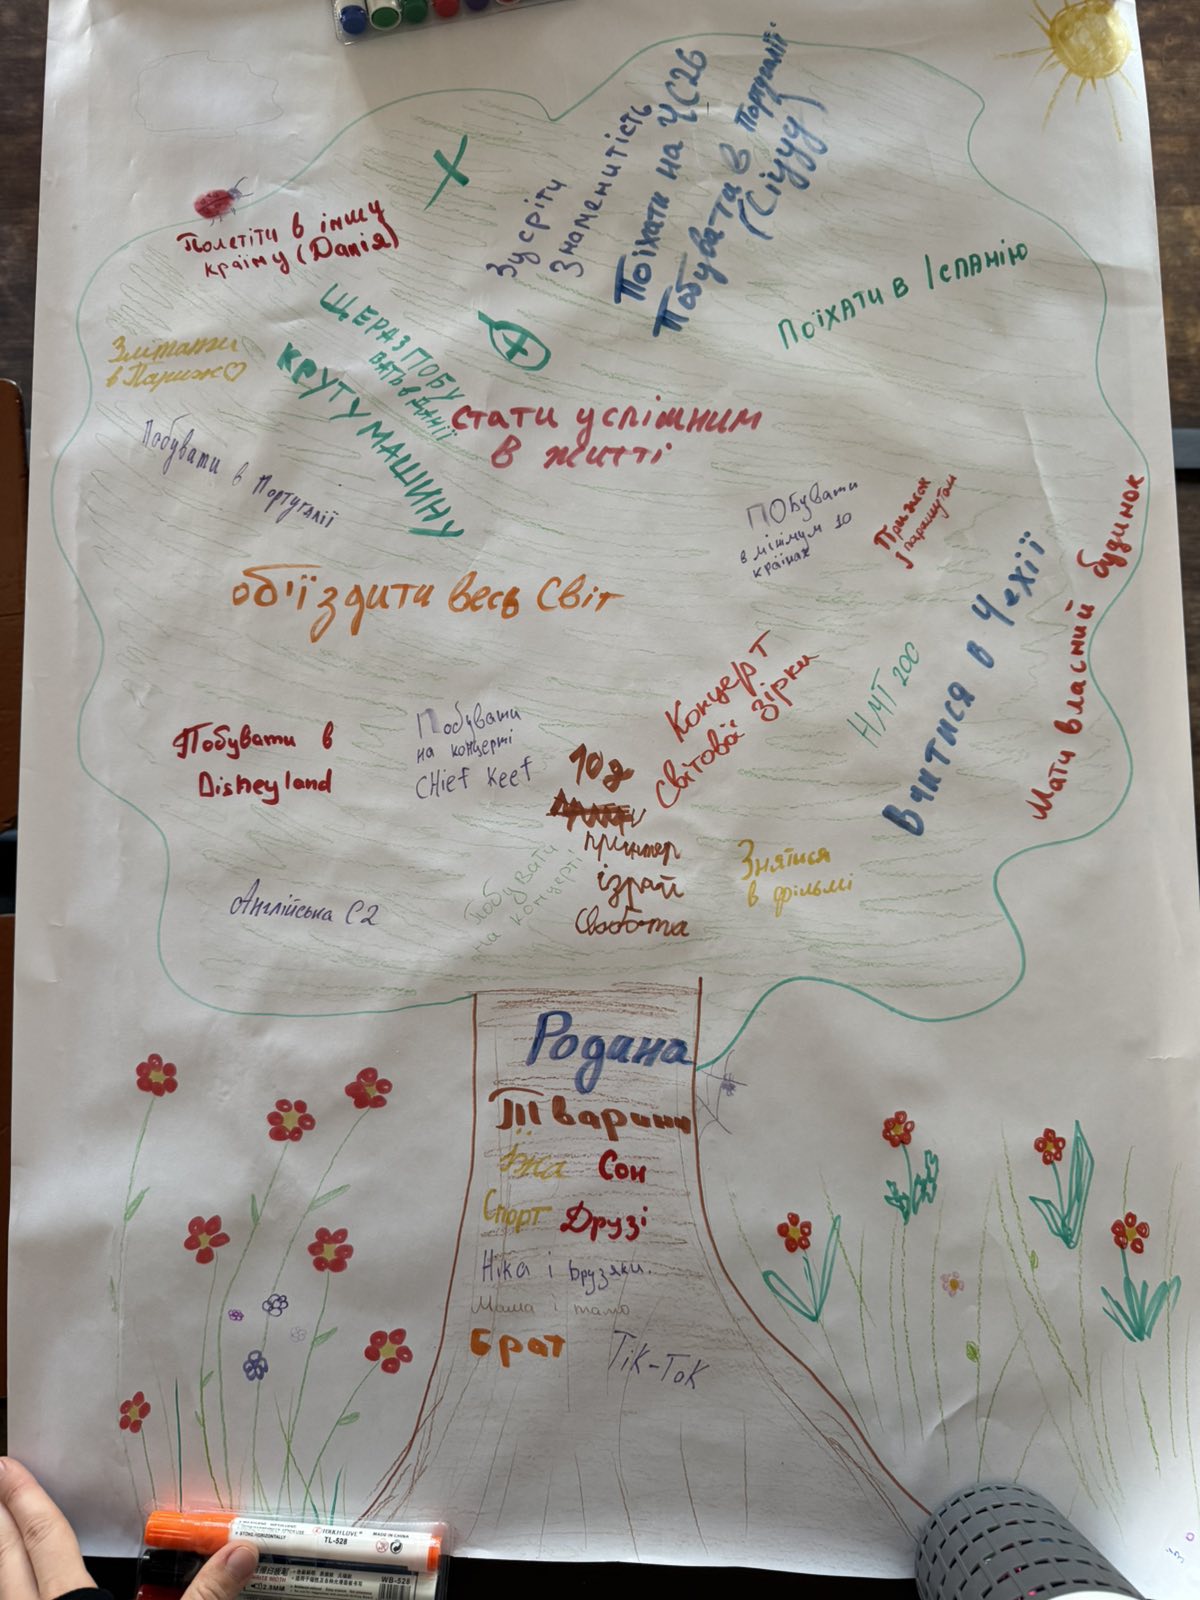 Зустріти
Знаменитість
Поїхати на ЧС26
Побувати в Португалії
(Сіууу)
Полетіти в іншу
країну (Данія)
Поїхати в Іспанію
ЩЕ РАЗ ПОБУ
ВАТЬ В ДАНІЇ
Злітати
в Париж
КРУТУ МАШИНУ
стати успішним
в житті
Побувати в Португалії
ПОбувати
в мінімум 10
країнах
Прижок
з парашутом
об'їздити весь Світ
Мати власний будинок
Вчитися в Чехії
НМТ 200
Концерт
світової зірки
Побувати в
Disneyland
Побувати
на концерті
CHief Keef
10д
принтер
ізраїл
свобота
Побувати
на концерті
Знятися
в фільмі
Англійська C2
Родина
Тварини
Їжа Сон
Спорт Друзі
Ніка і Брузяки.
Мама і тато
Брат
Tik-Tok
TL-528
MADE IN CHINA
WB-528